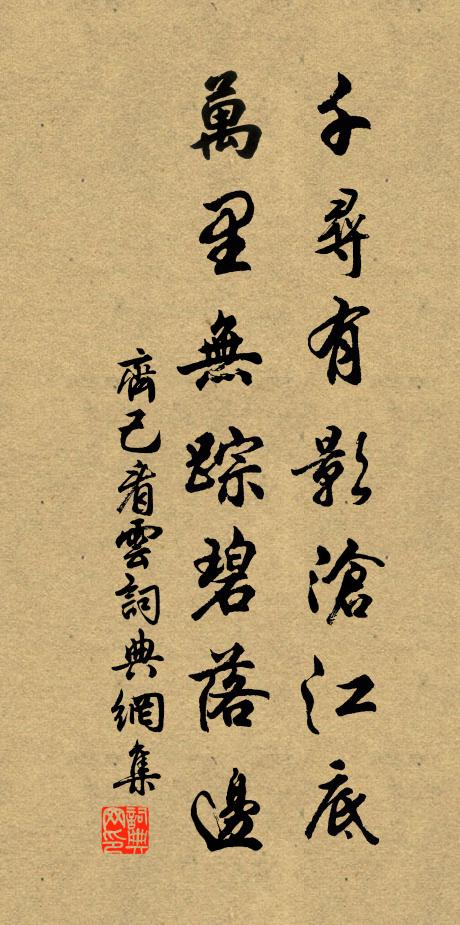 千尋有影滄江底
萬里無踪碧落邊
齊己看雲詞典網集
詞典网印